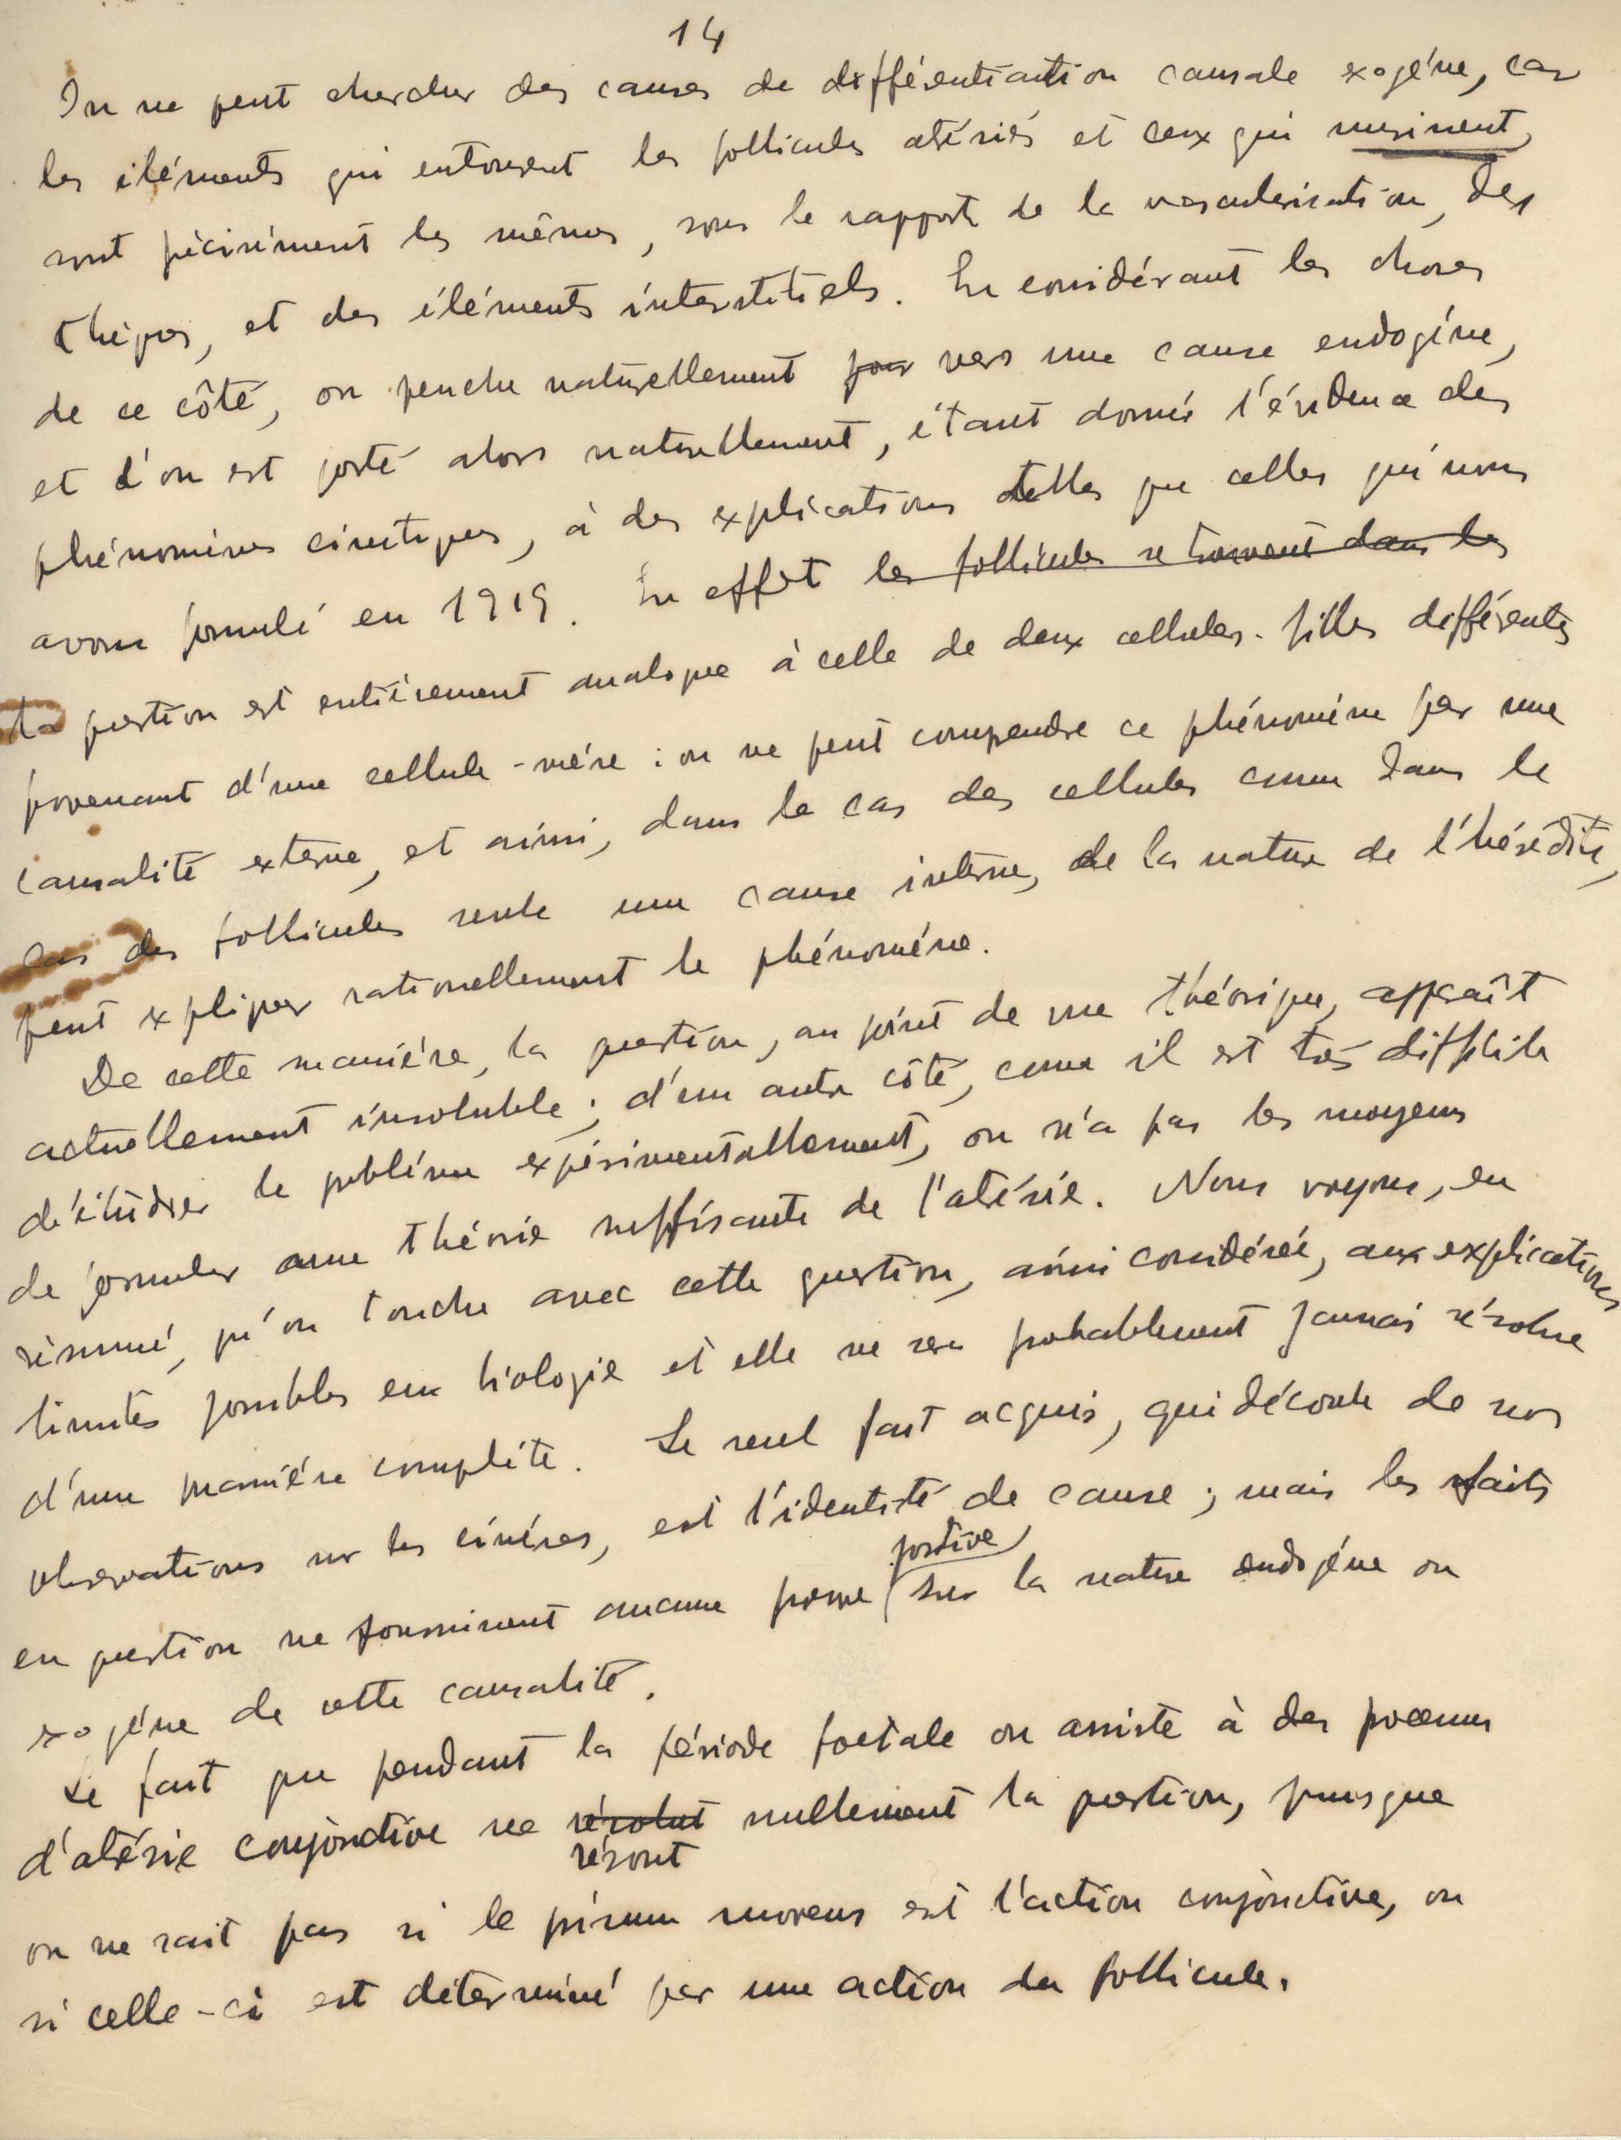 14
On ne peut chercher des causes de différentiation causale exogène, car
les éléments qui entourent les follicules atrésiés et ceux qui murissent,
sont précisément les mêmes, sous le rapport de la vascularisation, des
thèques, et des éléments interstitiels. En considérant les choses
de ce côté, on penche naturellement pour vers une cause endogène,
et l'on est porté alors naturellement, étant donné l'évidence des
phénomènes cinétiques, à des explications telles que celles qui nous
avons formulé en 1919. En effet les follicules se trouvent dans les
la question est entièrement analogue à celle de deux cellules-filles différentes
provenant d'une cellule-mère : on ne peut comprendre ce phénomène par une
causalité externe, et ainsi, dans le cas des cellules comme dans le
cas des follicules seule une cause interne, de la nature de l'hérédité,
peut expliquer rationellement le phénomène.
De cette manière, la question, au point de vue théorique, apparaît
actuellement insoluble ; d'un autre côté, comme il est très difficile
d'étudier le problème expérimentallement, on n'a pas les moyens
de formuler une théorie suffisante de l'atrésie. Nous voyons, en
résumé, qu'on touche avec cette question, ainsi considérée, aux explications
limites possibles en biologie et elle ne sera probablement jamais résolue
d'une manière complète. Le seul fait acquis, qui découle de nos
observations sur les cinèses, est l'identité de cause ; mais les faits
en question ne fournissent aucune preuve positive sur la nature endogène ou
exogène de cette causalité.
Le fait que pendant la période foetale on assiste à des processus
d'atrésie conjonctive ne résolut nullement la question, puisque
résout
on ne sait pas si le primum movens est l'action conjonctive, ou
si celle-ci est déterminé par une action du follicule.